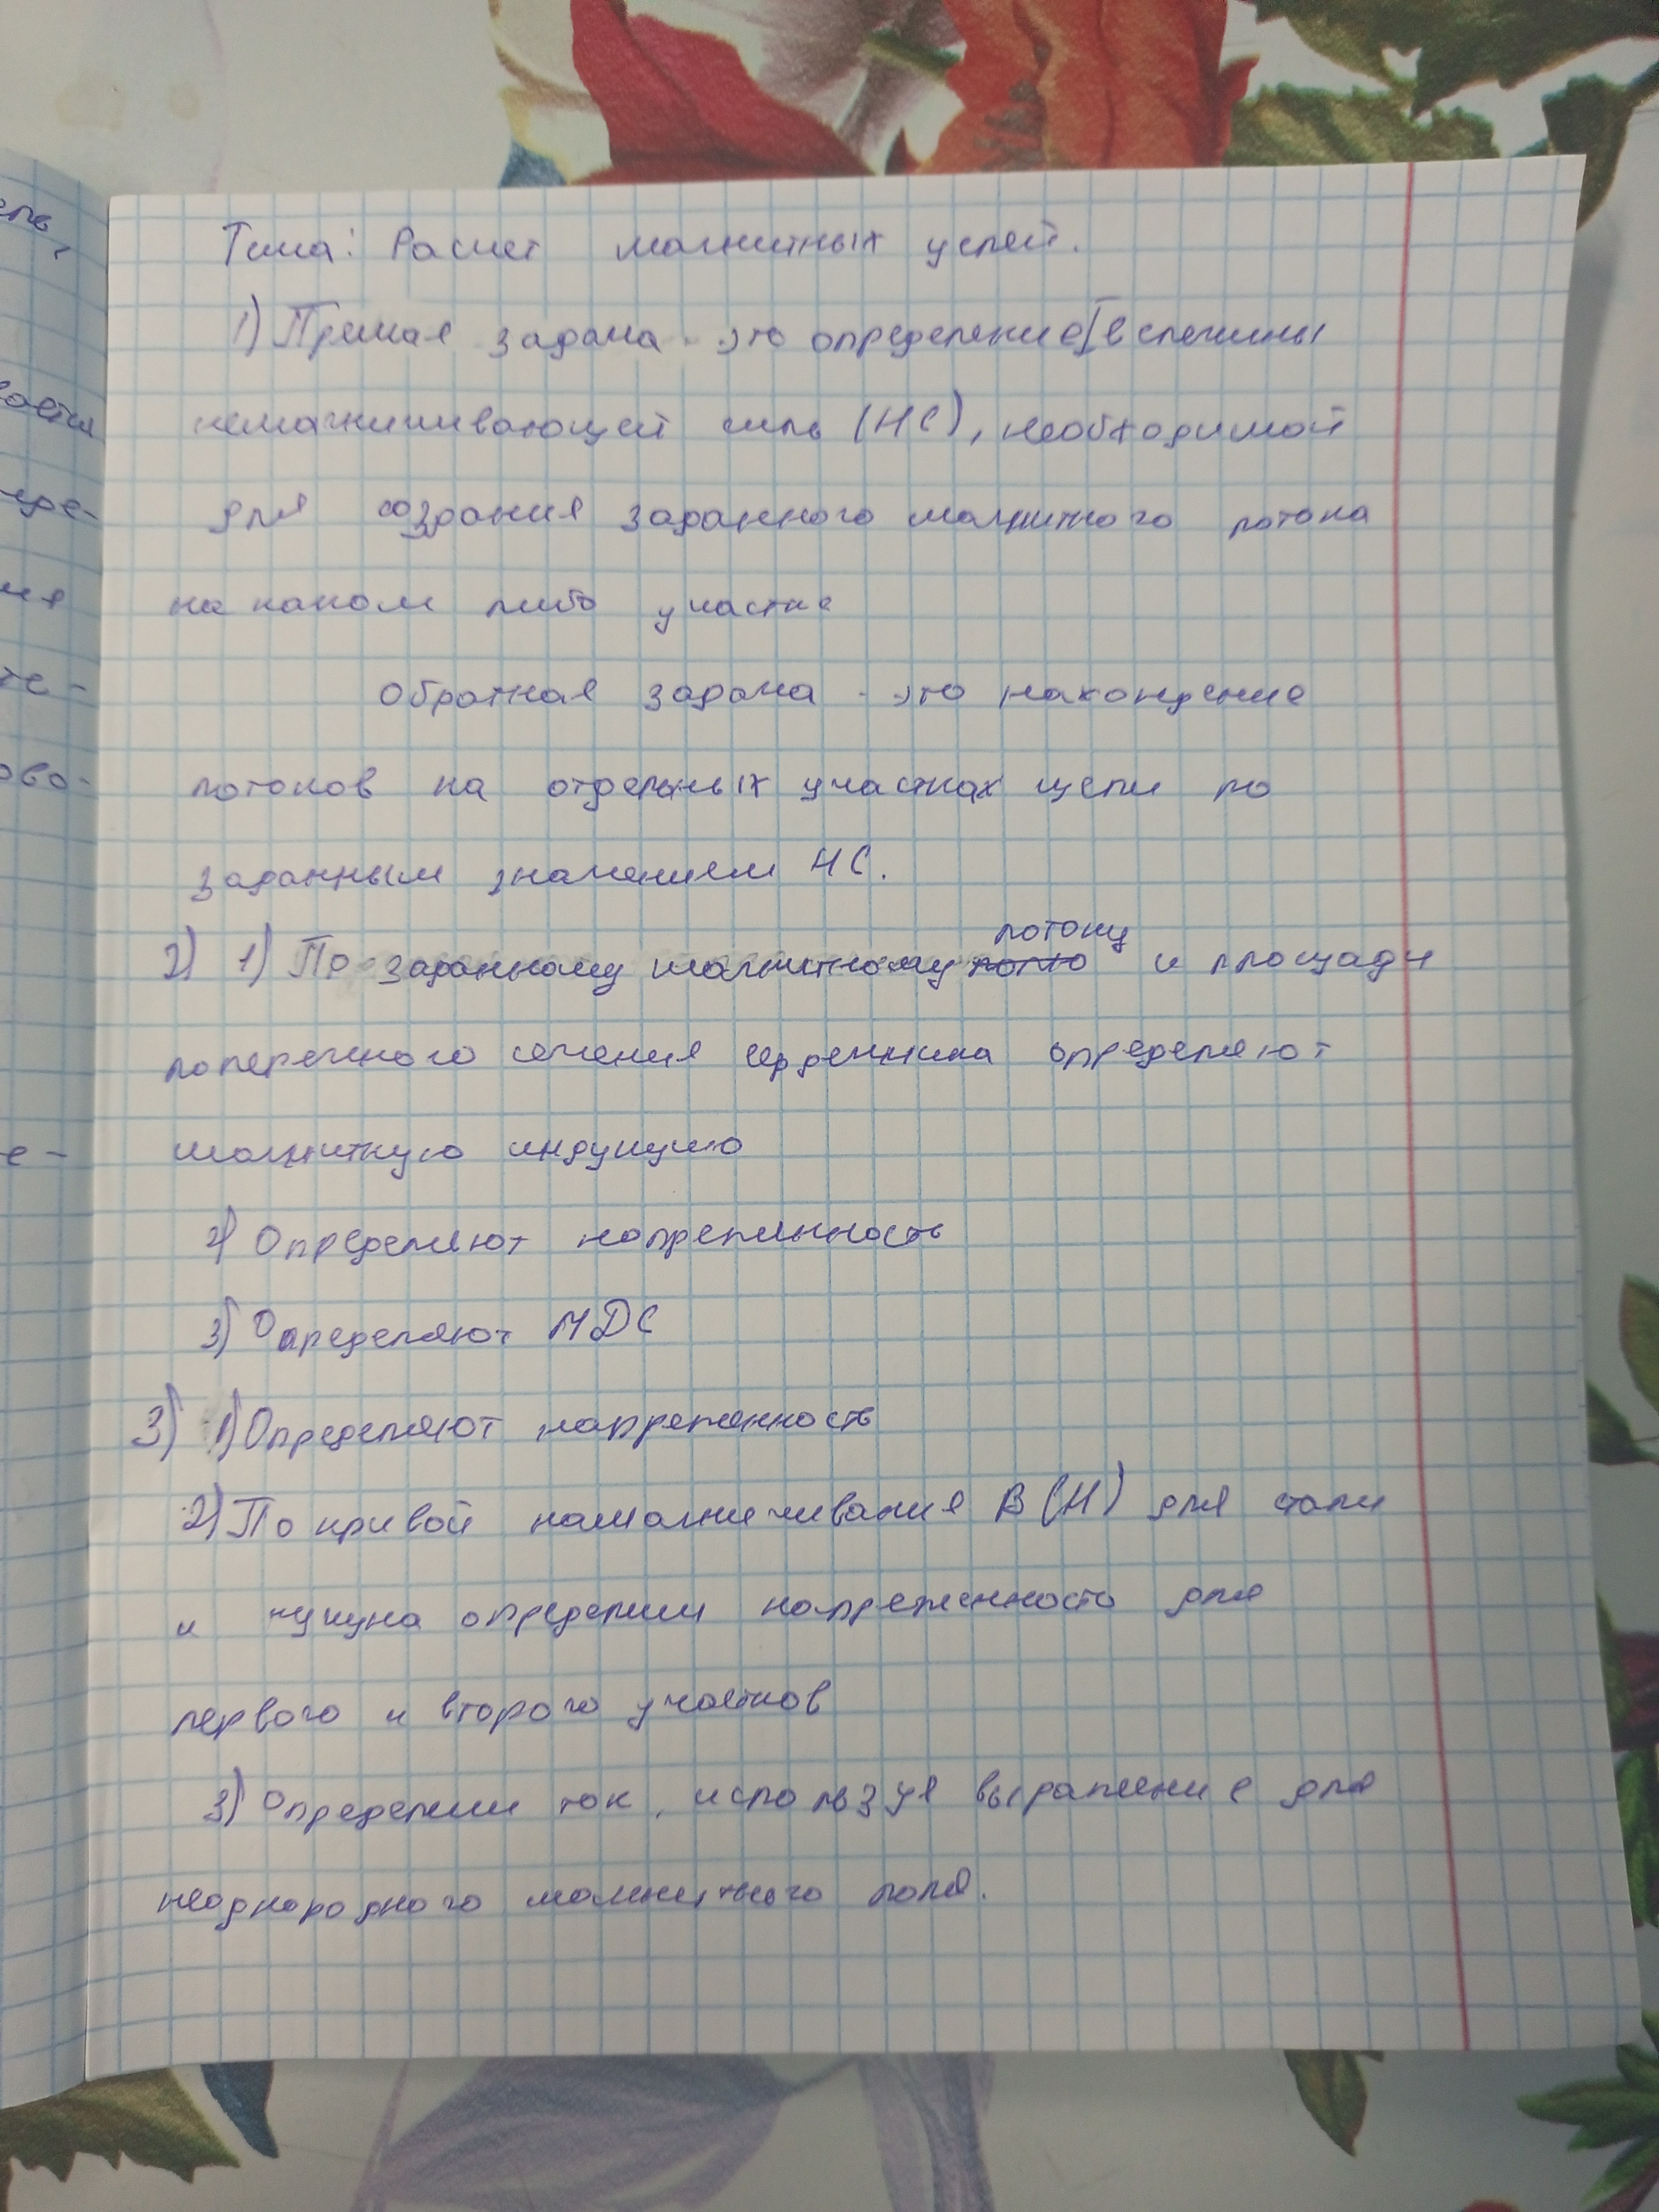 Тема: Расчет магнитных цепей.
1) Прямая задача - это определение величины
намагничивающей силы (НС), необходимой
для создания заданного магнитного потока
на каком либо участке
Обратная задача - это нахождение
потоков на отдельных участках цепи по
заданным значениям НС.
2) 1) По заданному магнитному потоку и площади
поперечного сечения сердечника определяют
магнитную индукцию
2) Определяют напряженность
3) Определяют МДС
3) 1) Определяют напряженность
2) По кривой намагничивания B(H) для стали
и чугуна определим напряженность для
первого и второго участков
3) Определим ток, используя выражение для
неоднородного магнитного поля.